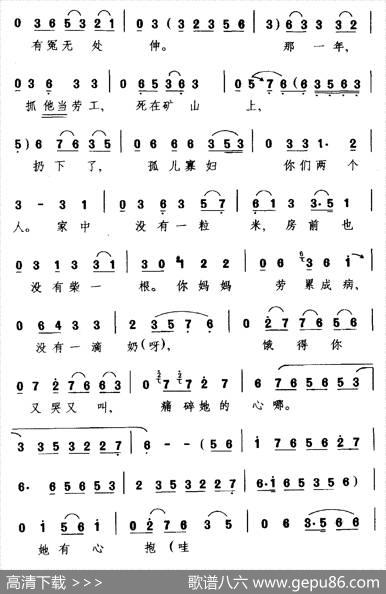 0 3 6 5 3 2 1 | 0 3 ( 3 2 2 3 5 6 | 3 ) 6 3 3 3 2 |
有冤无处 伸。 那一年,
0 3 6 3 3 | 0 6 5 3 6 3 | 0 5 7 6 ( 6 3 5 6 3
抓他当劳工, 死在矿山 上,
5 ) 6 7 6 3 5 | 0 6 6 6 3 5 3 | 0 3 3 1· 2 |
扔下了, 孤儿寡妇 你们两个
3 - 3 1 | 0 3 6 3 5 7 | 6 1 3 3·5 1 |
人。家中 没有一粒 米,房前也
0 3 1 3 3 1 | 3 0 2 2 2 | 0 6 3 6 i |
没有柴一 根。你妈妈 劳累成病,
0 6 4 3 3 | 2 3 5 7 6 | 0 2 7 7 6 5 6 |
没有一滴 奶(呀), 饿得你
0 7 2 7 6 6 3 | 0 7 7 7 2 7 | 6 7 6 5 6 5 3 |
又哭又叫, 痛碎她的 心哪。
3 3 5 3 2 2 7 | 6 - - ( 5 6 | i 7 6 5 6 2 7 |
6· 5 6 5 3 5 2 | 2 3 5 3 2 2 7 | 6·i 6 5 3 5 6 ) |
0 i 5 6 i | 0 2 7 6 3 5 | 0 6 3·5 6 6 |
她有心 抱(哇
高清下载 >>> 歌谱八六 www.gepu86.com